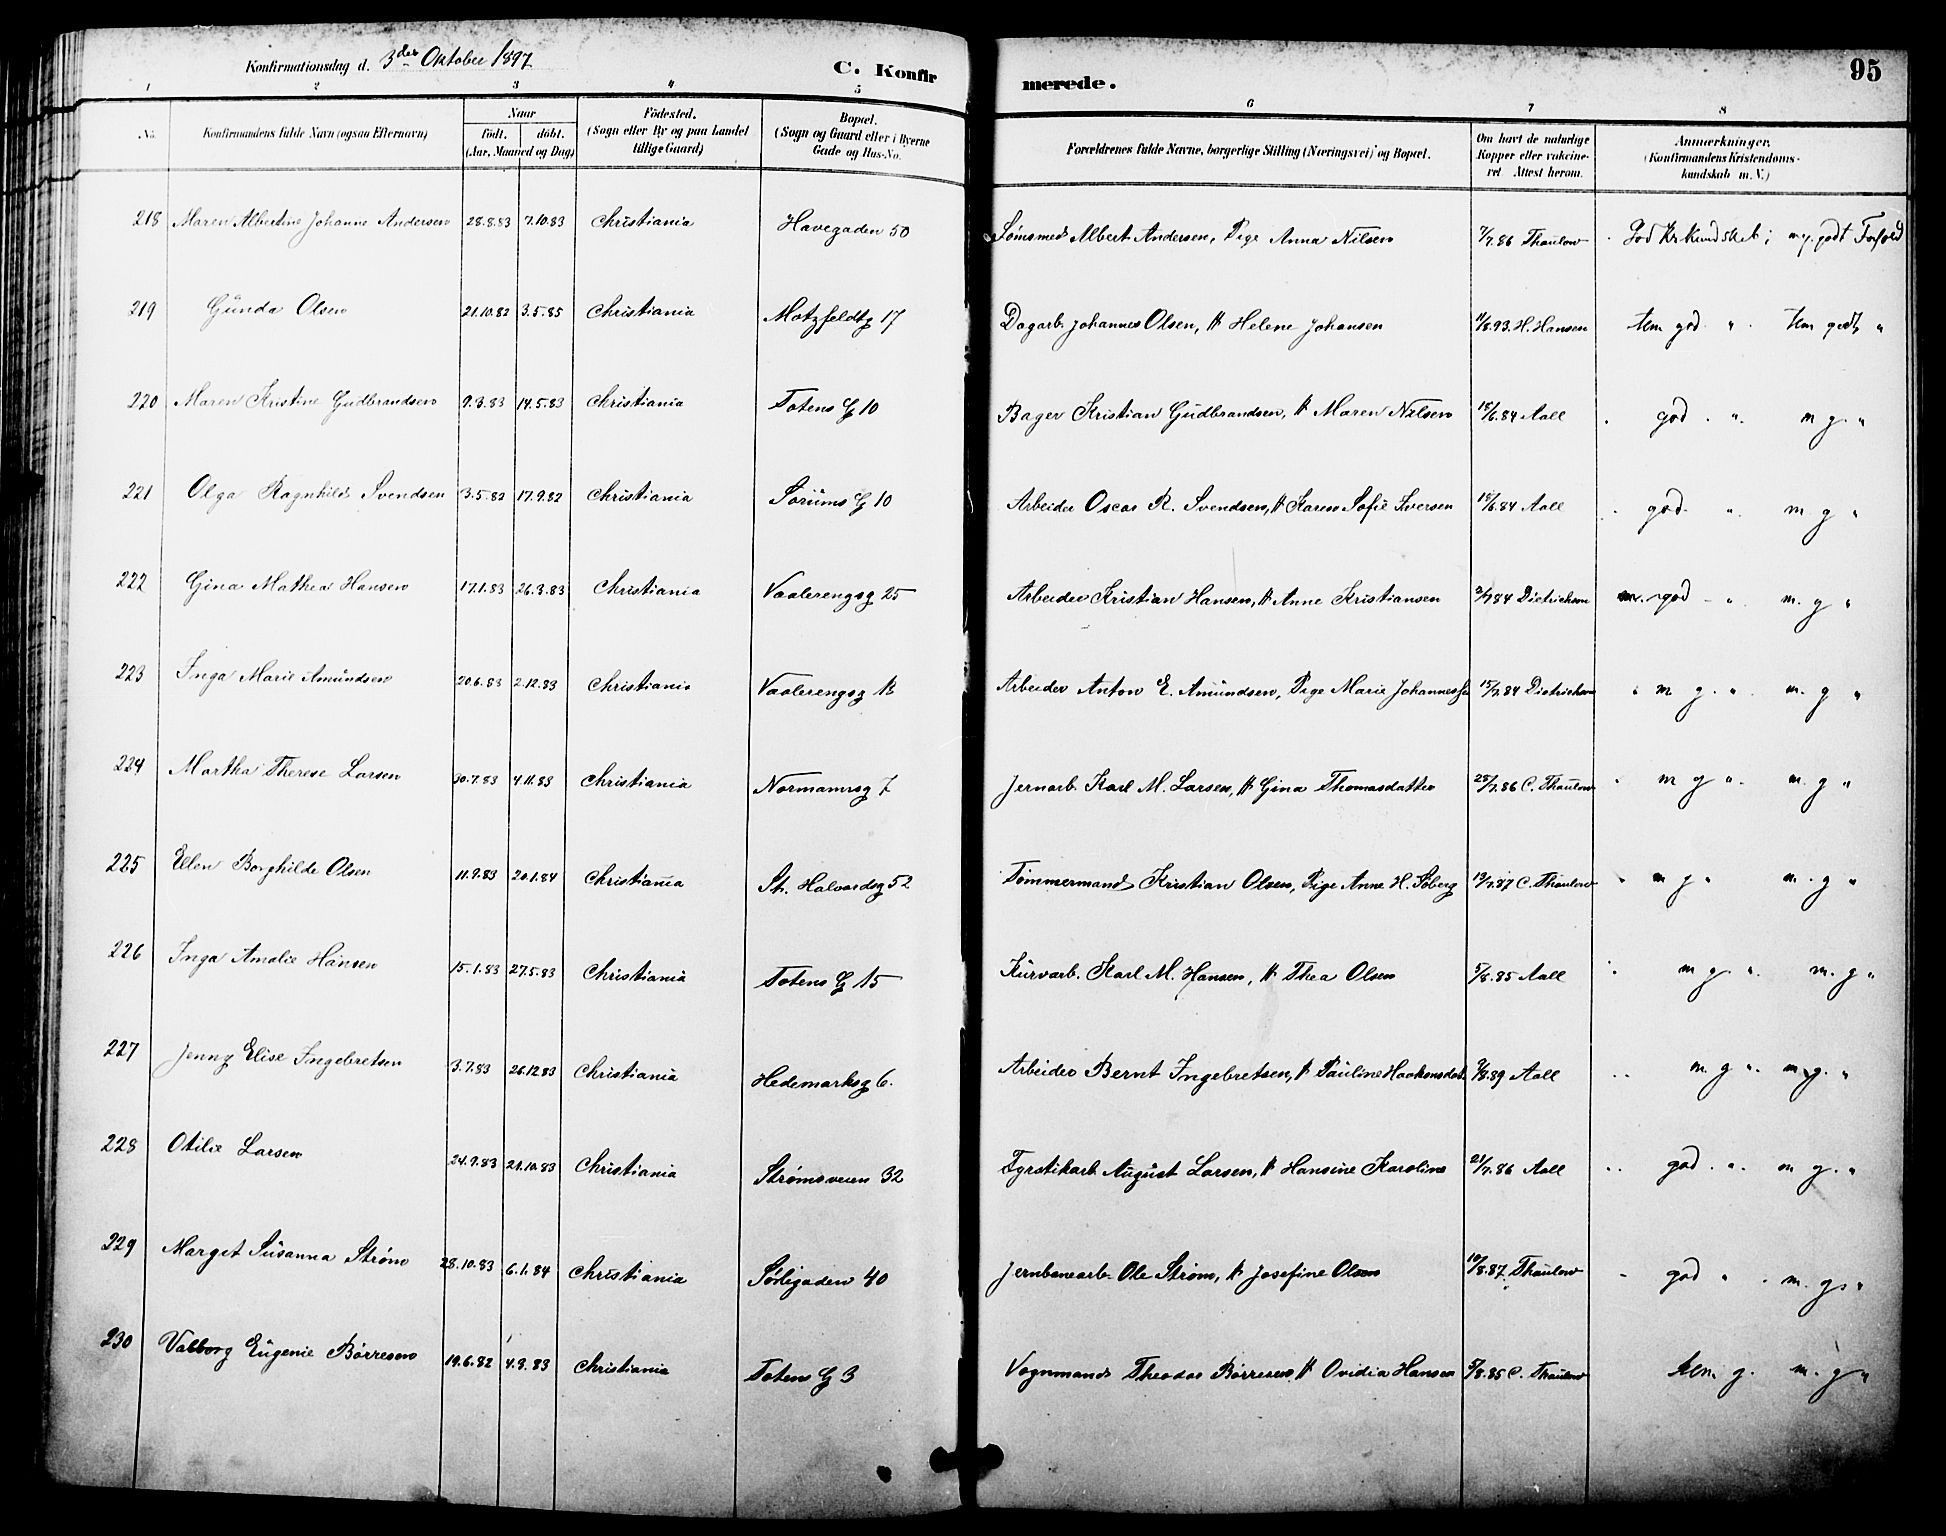 Konfirmationsdag d. 3die Oktober 1897 C. Konfirmerede. 95
1 2 3 4 5 6 7 8
No. Konfirmandens fulde Navn (ogsaa Efternavn) Naar født. døbt. (Aar, Maaned og Dag) Fødested. (Sogn eller By og paa Landet tillige Gaard) Bopæl. (Sogn og Gaard eller i Byerne Gade og Hus-No. Forældrenes fulde Navne, borgerlige Stilling (Næringsvei) og Bopæl. Om havt de naturlige Kopper eller vakcineret Attest herom. Anmærkninger. (Konfirmandens Kristendomskundskab m. V.)
218 Maren Albertine Johanne Andersen 28.8.83 7.10.83 Christiania Havegaden 50 Sømsmed Albert Andersen, Pige Anna Nilsen 7/7.86 Thaulow God Kr.kundskab; mg. godt Forhold
219 Gunda Olsen 21.10.82 3.5.85 Christiania Motzfeldtg 17 Dagarb. Johannes Olsen, H Helene Johansen 11/8.93. H. Hansen tem god " tem godt "
220 Maren Kristine Gudbrandsen 9.3.83 14.5.83 Christiania Totens G 10 Bager Kristian Gudbrandsen, H Maren Nilsen 18/6.84 Aall god " m g. "
221 Olga Ragnhild Svendsen 3.5.82 17.9.82 Christiania Sørums G 10 Arbeider Oscar R. Svendsen, H Karen Sofie Iversen 18/6.84 Aall god " m g "
222 Gina Mathea Hansen 17.1.83 26.3.83 Christiania Vaalerengsg 25 Arbeider Kristian Hansen, H Anne Kristiansen 2/7 84 Dietrichson god " m. g "
223 Inga Marie Amundsen 20.6.83 2.12.83 Christiania Vaalerengsg Arbeider Anton E. Amundsen, Pige Marie 15/7.84 Dietrichson m g. " m. g "
224 Martha Therese Larsen 30.7.83 4.11.83 Christiania Normannsg 7 Jernarb. Karl M. Larsen, H Gina Thomasdatter 28/7.86 C. Thaulow m g " m. g "
225 Ellen Borghilde Olsen 11.9.83 20.1.84 Christiania St. Halvardsg 52 Tømmermand Kristian Olsen, Pige Anne H. Soberg 19/7.87 C. Thaulow m g " m. g "
226 Inga Amalie Hansen 15.1.83 27.5.83 Christiania Totens G 15 Kurvarb. Karl M. Hansen, H Thea Olsen 5/8.85 Aall m g " m. g "
227 Jenny Elise Ingebretsen 3.7.83 26.12.83 Christiania Hedemarksg 6. Arbeider Bernt Ingebretsen, H Pauline Haakonsdat. /8.89 Aall m. g " m. g. "
228 Otilie Larsen 24.9.83 21.10.83 Christiania Strømsveien 32 Fyrstikarb August Larsen, H Hansine Karoline 21/7.86 Aall god " m g. "
229 Margit Susanna Strøm 28.10.83 6.1.84 Christiania Sørligaden 40 Jernbanearb. Ole Strøm, H Josefine Olsen 10/8.87. Thaulow god " m. g. "
230 Valborg Eugenie Børresen 19.6.82 4.3.83 Christiania Totens G 3 Vognmand Theodor Børresen, H Ovidia Hansen 5/8.85 C. Thaulow tem. g. m. g "